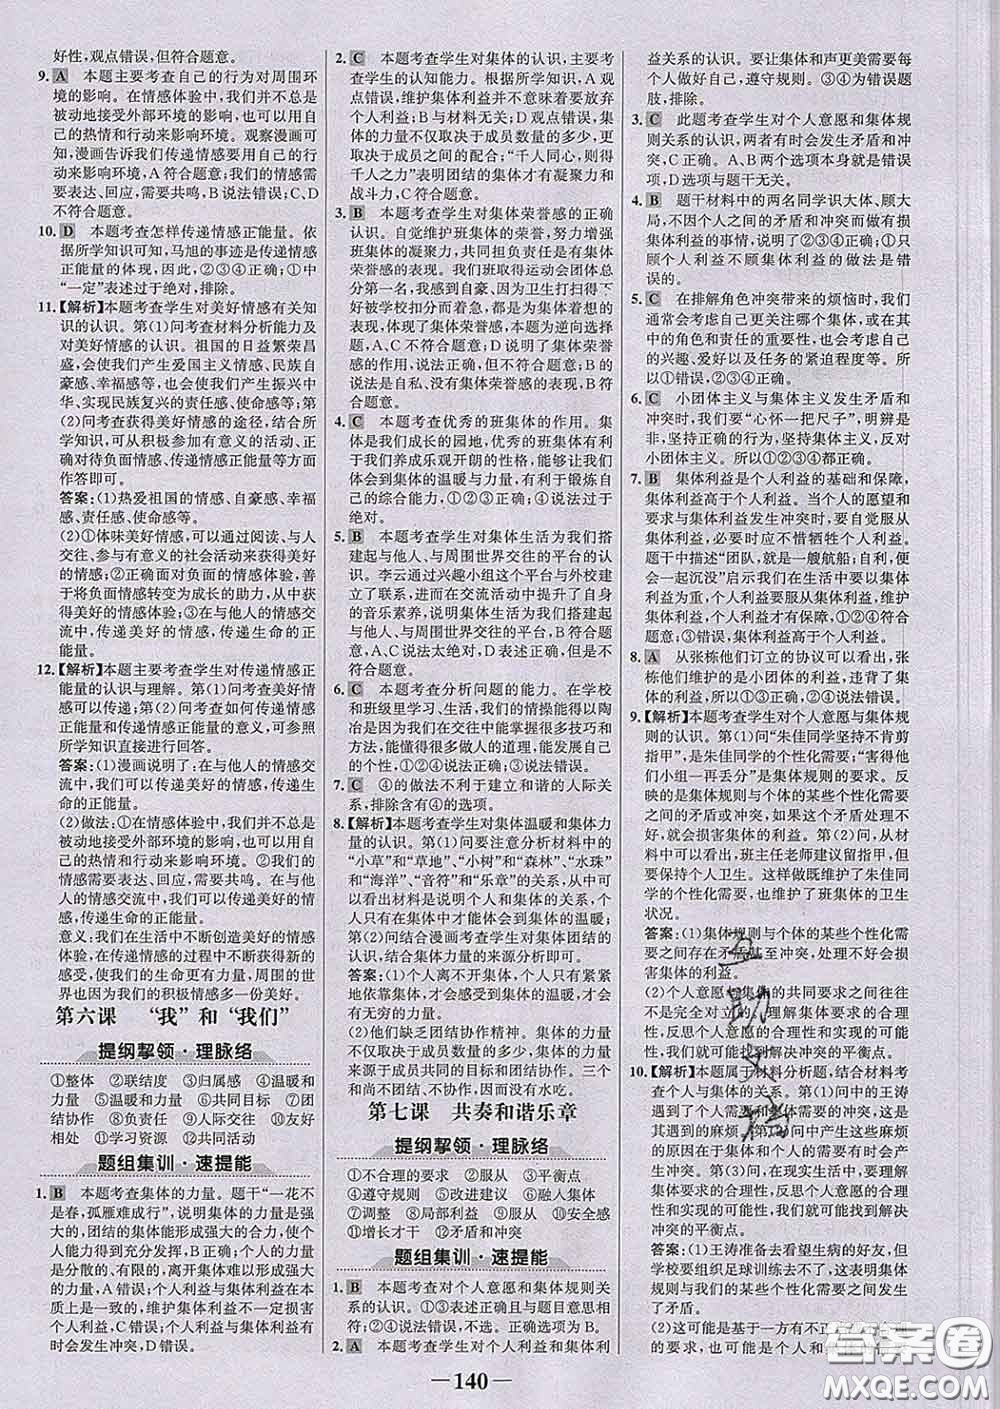 好性，观点错误，但符合题意。
9. A 本题主要考查自己的行为对周围环
境的影响。在情感体验中，我们并不总是
被动地接受外部环境的影响，也可以用自
己的热情和行动来影响环境。观察漫画可
知，漫画告诉我们传递情感要用自己的行
动来影响环境，A符合题意；我们的情感需
要表达、回应，需要共鸣，B说法错误；C、D
不符合题意。
10. D 本题考查怎样传递情感正能量。依
据所学知识可知，马旭的事迹是传递情感
正能量的体现，因此，②③④正确；①中
“一定”表述过于绝对，排除。
11.【解析】本题考查学生对美好情感有关知
识的认识。第(1)问考查材料分析能力及
对美好情感的认识。祖国的日益繁荣昌
盛，会使我们产生爱国主义情感、民族自
豪感、幸福感等，也会使我们产生振兴中
华、实现民族复兴的责任感、使命感等；第
(2)问考查获得美好情感的途径，结合所
学知识，可从积极参加有意义的活动、正
确对待负面情感、传递情感正能量等方面
作答即可。
答案：(1)热爱祖国的情感、自豪感、幸福
感、责任感、使命感等。
(2)①体味美好情感，可以通过阅读、与人
交往、参与有意义的社会活动来获得美好
的情感；②正确面对负面的情感体验，善于
将负面情感转变为成长的助力，从中获
得美好的情感体验；③在与他人的情感交
流中，传递美好的情感，传递生命的正
能量。
12.【解析】本题主要考查学生对传递情感正
能量的认识与理解。第(1)问考查美好情
感可以传递；第(2)问考查如何传递情感
正能量和传递情感正能量的意义，可参照
所学知识直接进行回答。
答案：(1)漫画说明了，在与他人的情感交
流中，我们可以传递美好的情感，传递生
命的正能量。
(2)做法：①在生活中，我们并不总是被动
地接受外部环境的影响，也可以用自己的
热情和行动来影响环境。②我们的情感
需要表达、回应，需要共鸣。在与他人的
情感交流中，我们可以传递美好的情感，
传递生命的正能量。
意义：我们在生活中不断创造美好的情感
体验，在传递情感的过程中不断获得新的
感受，使我们的生命更有力量，周围的世
界也因为我们的积极情感多一份美好。
第六课 “我”和“我们”
提纲挈领·理脉络
①整体 ②联结度 ③归属感 ④温暖和
力量 ⑤温暖和力量 ⑥共同目标 ⑦团
结协作 ⑧负责任 ⑨人际交往 ⑩友好
相处 ⑪学习资源 ⑫共同活动
题组集训·速提能
1. B 本题考查集体的力量。题干“一花不
是春，孤雁难成行”，说明集体的力量是强
大的，团结的集体能形成强大的合力，使个
人能力得到充分发挥，B正确；个人的力量
是分散的、有限的，离开集体还有可能是强
大的，A错误；个人利益和集体利益在本
质上是一致的，维护集体利益不一定损害
个人利益，C错误；个人利益与集体利益有
时会发生冲突，D错误。
2. C 本题考查学生对集体的认识，主要考
查学生的认知能力。根据所学知识，A观
点错误，维护集体利益并不意味着要放弃
个人利益；B与材料无关；D观点错误，集
体的力量不仅取决于成员数量的多少，更
取决于成员之间的配合；“千人同心，则得
千人之力”表明团结的集体才有凝聚力和
战斗力，C符合题意。
3. B 本题考查学生对集体荣誉感的正确
认识。自觉维护班集体的荣誉，努力增强
班集体的凝聚力，共同担负责任是有集体
荣誉感的表现。我们班取得运动会团体总
分第一名，我感到自豪；因为卫生打扫得不
好被学校扣分而着急；都是为集体着想的
表现，体现了集体荣誉感，本题为逆向选择
题，A、C不符合题意；D说明了集体荣誉
感的作用，说法正确，不符合题意；B的
说法是自私、没有集体荣誉感的表现，B符合
题意。
4. C 本题考查优秀的班集体的作用。集
体是我们成长的园地，优秀的班集体有利
于我们养成乐观开朗的性格，能够让我们
体会到集体的温暖与力量，有利于锻炼自
己的综合能力，①②③正确；④说法过于
绝对。
5. B 本题考查学生对集体生活为我们搭
建起与他人、与周围世界交往的平台的认
识理解。李云通过兴趣小组这个平台与外校
建立了联系，进而在交流活动中提升了自身
的音乐素养，说明集体生活为我们搭建起
与他人交往的平台，B符合题意；A观点
不全面，C说法太绝对，D与材料主旨不
符，不符合题意。
6. C 本题考查分析问题的能力。在学校
和班级里学习、生活，我们的情操能得到陶
冶，是因为我们在交往中能掌握很多技巧和
方法，能懂得很多做人的道理，能发展多方
面的兴趣，①②③正确。④说法错误，不
选。
7. C ④的做法不利于建立和谐的人际关
系，排除含有④的选项。
8.【解析】本题考查学生对集体温暖和集体力
量的认识。第(1)问要注意分析材料中的
“小草”和“草地”、“小树”和“森林”、“水珠”
和“海洋”、“音符”和“乐章”的关系，从中可
以看出材料是说明个人和集体的关系，个
人只有在集体中才能体会到集体的温暖；
第(2)问结合漫画考查学生对集体团结的
认识，结合集体力量的来源分析即可。
答案：(1)个人离不开集体，个人只有紧紧
地依靠集体，才能体会到集体的温暖，才会
有无穷的力量。
(2)他们缺乏团结协作精神。集体的力量
取决于成员数量的多少，更重要的是，集体
力量来源于成员共同的目标和团结协作。三个
和尚不团结、不协作，因而没有水吃。
第七课 共奏和谐乐章
提纲挈领·理脉络
①不合理的要求 ②服从 ③服从
④遵守规则 ⑤改进建议 ⑥融入集体
⑦调整 ⑧局部利益 ⑨服从 ⑩安全感
⑪增长才干 ⑫矛盾和冲突
题组集训·速提能
1. B 本题考查对个人意愿和集体规则关
系的认识。①③表述正确且与题目意思相
符；②④说法错误，不选。因而答案为B。
2. A 本题考查学生对个人利益和集体利
益关系的认识。要想集体和声更美需要每
个人做好自己，遵守规则。③④为错误题
肢，排除。
3. C 此题考查学生对个人意愿和集体规
则关系的认识，两者有时会发生矛盾和冲
突，C正确。A、B两个选项本身就是错误
项，D选项与题干无关。
4. B 题干材料中的两名同学识大体、顾大
局，不因个人之间的矛盾和冲突而做有损
集体利益的事情，说明了②③④；①只
顾个人利益不顾集体利益的做法是错
误的。
5. C 在排解角色冲突带来的烦恼时，我们
通常会考虑自己更关注哪个集体，或在其
中的角色和责任的重要性，也会考虑自己
的兴趣、爱好以及任务的紧迫程度等。所
以①错误，②③④正确。
6. C 小团体主义与集体主义发生矛盾和
冲突时，我们要“心怀一把尺子”，明辨是
非，坚持正确的行为，坚持集体主义，反对
小团体主义。所以①②③正确，④错误。
7. B 集体利益是个人利益的基础和保障，
集体利益高于个人利益。当个人的愿望和
要求与集体利益发生冲突时，要自觉服从
集体利益，必要时应不惜牺牲个人利益。
题干中描述“团队，就是一艘航船；自利，便
会一起沉没”启示我们在生活中要以集体
利益为重，个人利益要服从集体利益，维护
集体利益，个人利益才有保障，①②④符合
题意；③错误，集体利益高于个人利益。
8. A 从张栋他们订立的协议可以看出，张
栋他们维护的是小团体的利益，违背了集
体利益，①③说法正确；②④说法错误。
9.【解析】本题考查学生对个人意愿与集体规
则的认识。第(1)问“朱佳同学坚持不肯剪
指甲”，是朱佳同学的个性化需要；“害得他
们小组一再丢分”是集体规则的要求。反
映的是集体规则与个体的某些个性化需要
之间的矛盾或冲突，如果这个矛盾处理不
好，就会损害集体的利益。第(2)问，从材
料中可以看出，班主任老师建议留指甲，但
要保持个人卫生。这样做既维护了朱佳同
学的个性化需要，也维护了班集体的卫生
状况。
答案：(1)集体规则与个体的某些个性化需
要之间存在矛盾甚至冲突，处理不好会损
害集体的利益。
(2)个人意愿与集体的共同要求之间往往不
是完全对立的，理解集体要求的合理性，
反思个人意愿的合理性和实现的可能
性，我们就可能找到解决冲突的平衡点。
10.【解析】本题属于材料分析题，结合材料考
查个人与集体的关系。第(1)问中的王涛
遇到了个人与集体之间发生矛盾的情况，
会有这样的麻烦；第(2)问中产生此麻烦
的原因在于个人与集体之间有时会产
生冲突。第(3)问，在现实生活中，遇到个
人意愿与集体规则的冲突时，理解集体要
求的合理性，反思个人意愿的合理性
和实现的可能性，我们就可能找到解决
冲突的平衡点。
答案：(1)王涛准备去看望生病的好友，但
学校要组织足球训练怎么去不了，这说明
集体规则与个人意愿之间发生
了矛盾。
(2)这可能是基于一方有不正
的要求
互助文摘
答案圈
MXQE.COM
—140—